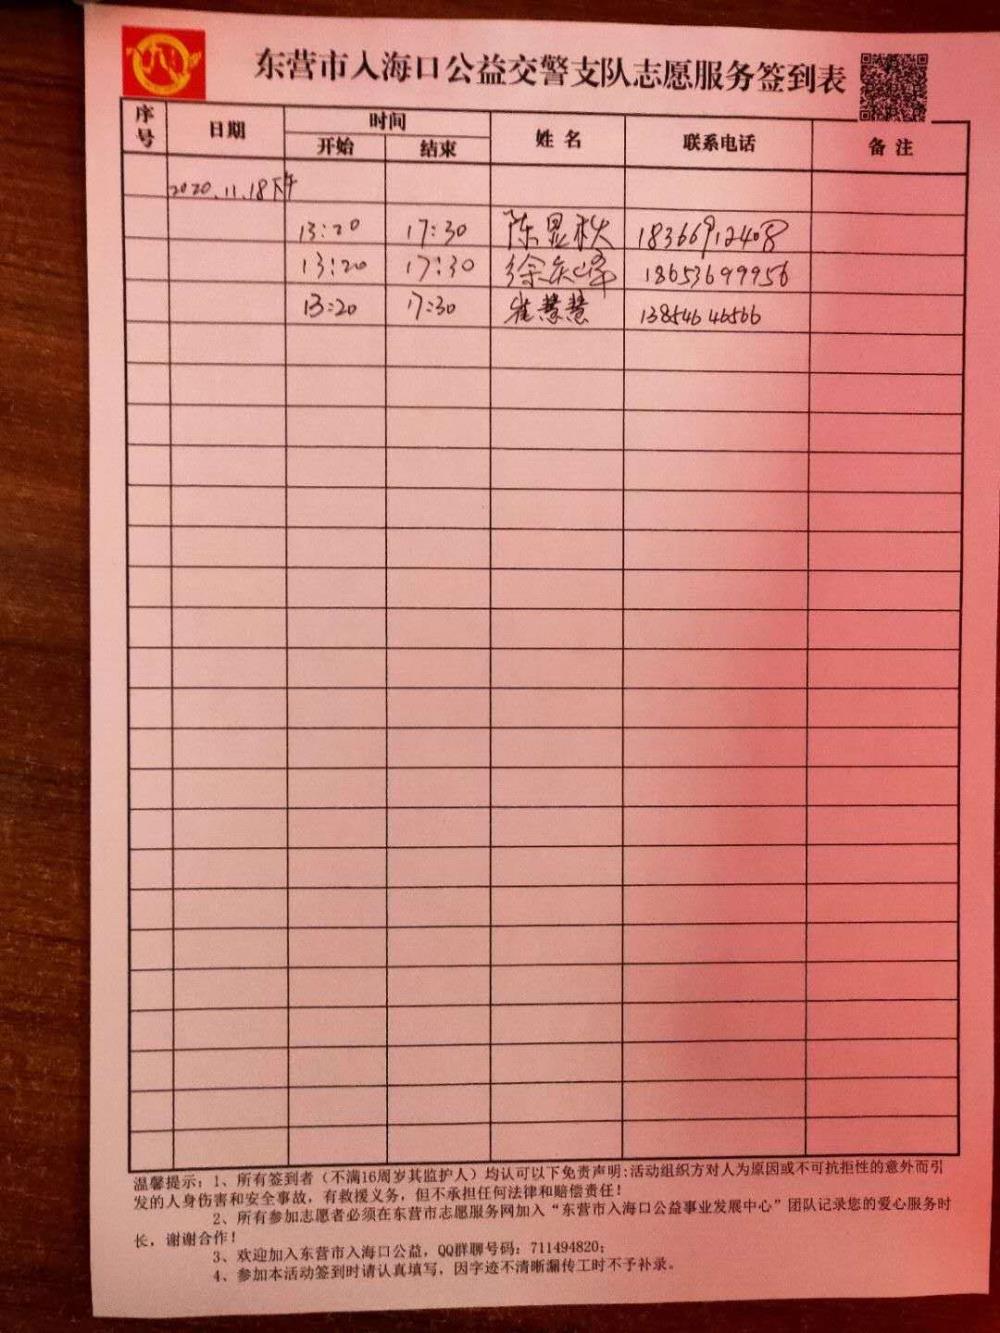 东营市入海口公益交警支队志愿服务签到表
序号 日期 时间 开始 结束 姓名 联系电话 备注
2020.11.18下午
13:20 17:30 陈显秋 18366912408
13:20 17:30 徐庆峰 18653699956
13:20 17:30 崔慧慧 13854646566
温馨提示:1、所有签到者(不满16周岁其监护人)均认可以下免责声明:活动组织方对人为原因或不可抗拒性的意外而引
发的人身伤害和安全事故,有救援义务,但不承担任何法律和赔偿责任!
2、所有参加志愿者必须在东营市志愿服务网加入“东营市入海口公益事业发展中心”团队记录您的爱心服务时
长,谢谢合作!
3、欢迎加入东营市入海口公益,QQ群聊号码:711494820;
4、参加本活动签到时请认真填写,因字迹不清晰漏传工时不予补录。